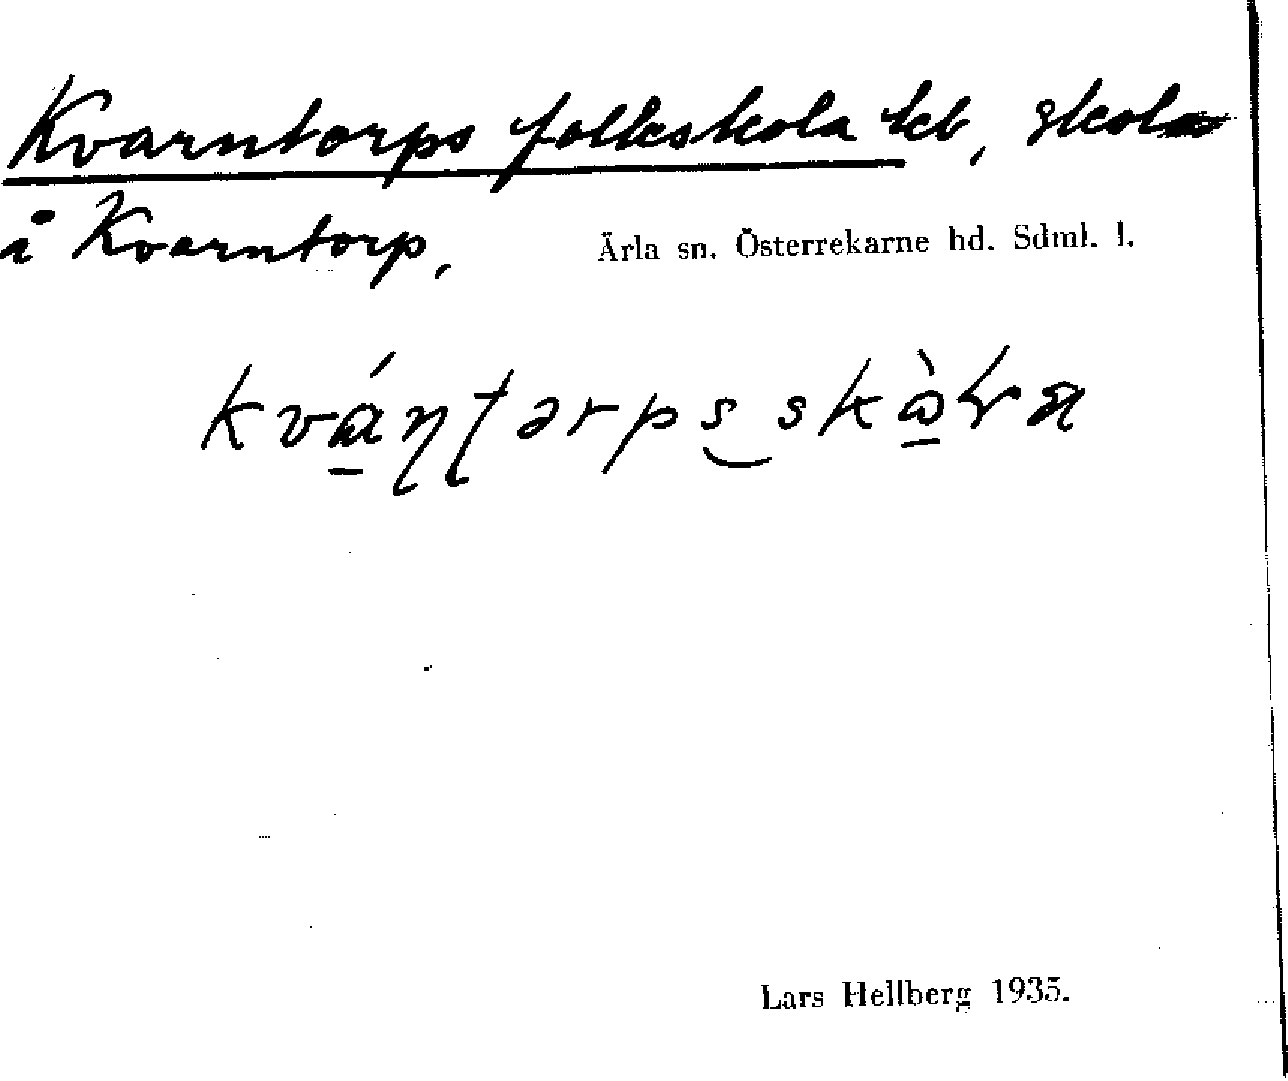 Kvarntorps folkskola kb, skola
å Kvarntorp, Ärla sn. Österrekarne hd. Sdml. l.
kvá̱ɳʈərps̮skὰ̱lra
Lars Hellberg 1935.